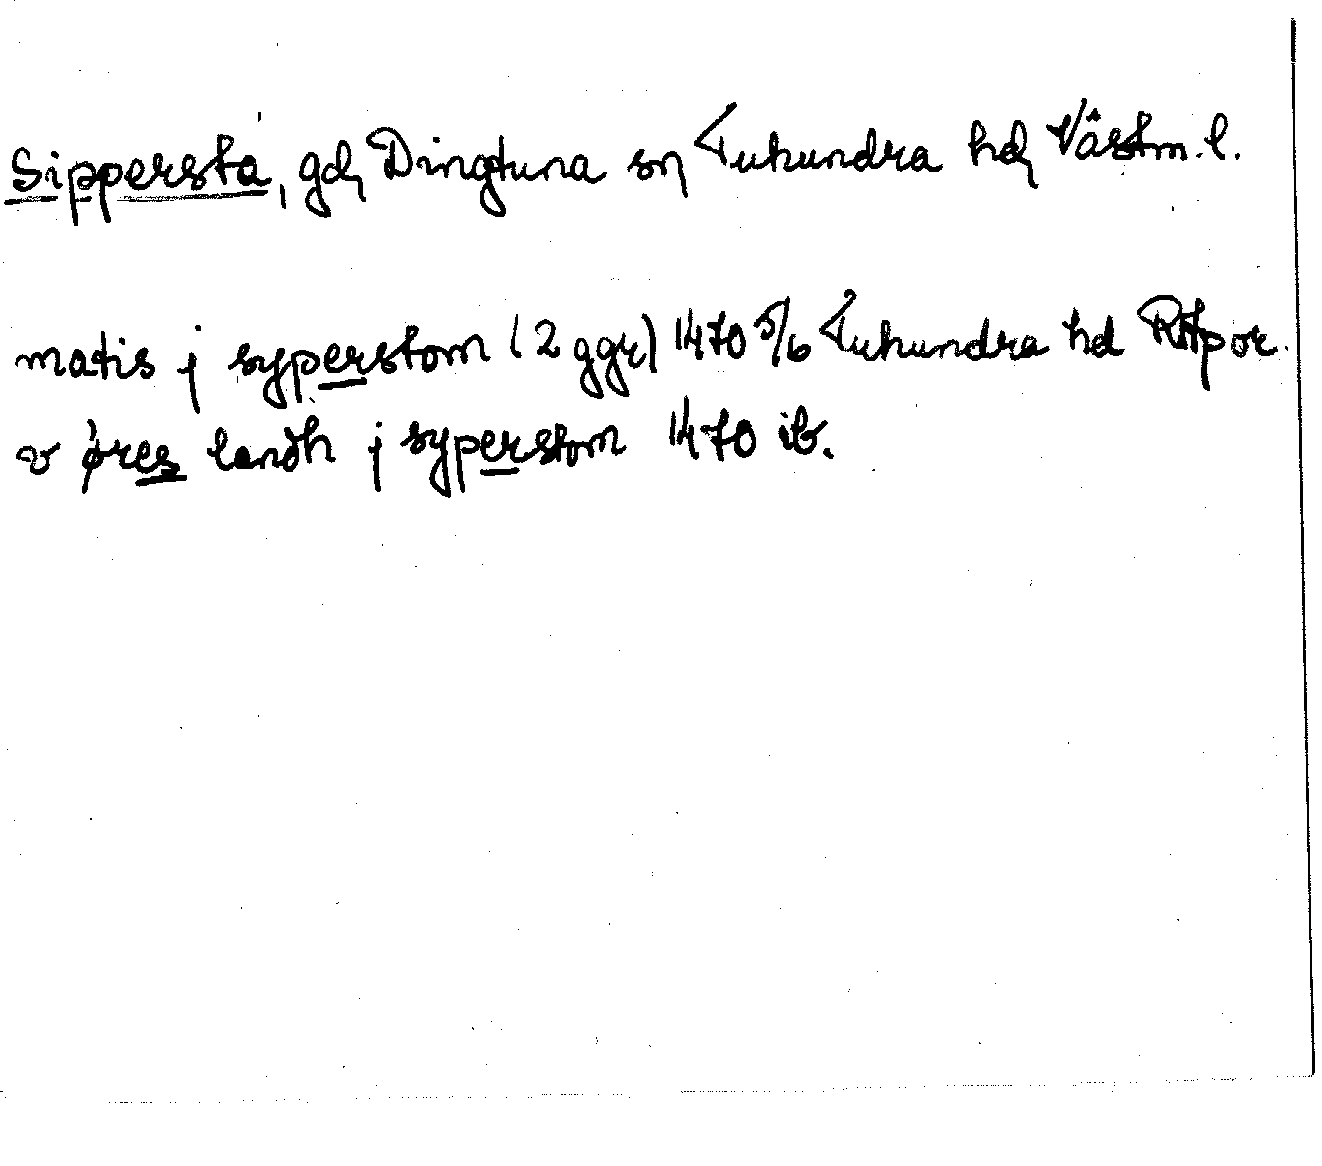 Sippersta, gd, Dingtuna sn, Tuhundra hd, Västm. l.
matis j syperstom (2 ggr) 1470 5/6 Tuhundra hd RApor.
v øres landh j syperstom 1470 ib.